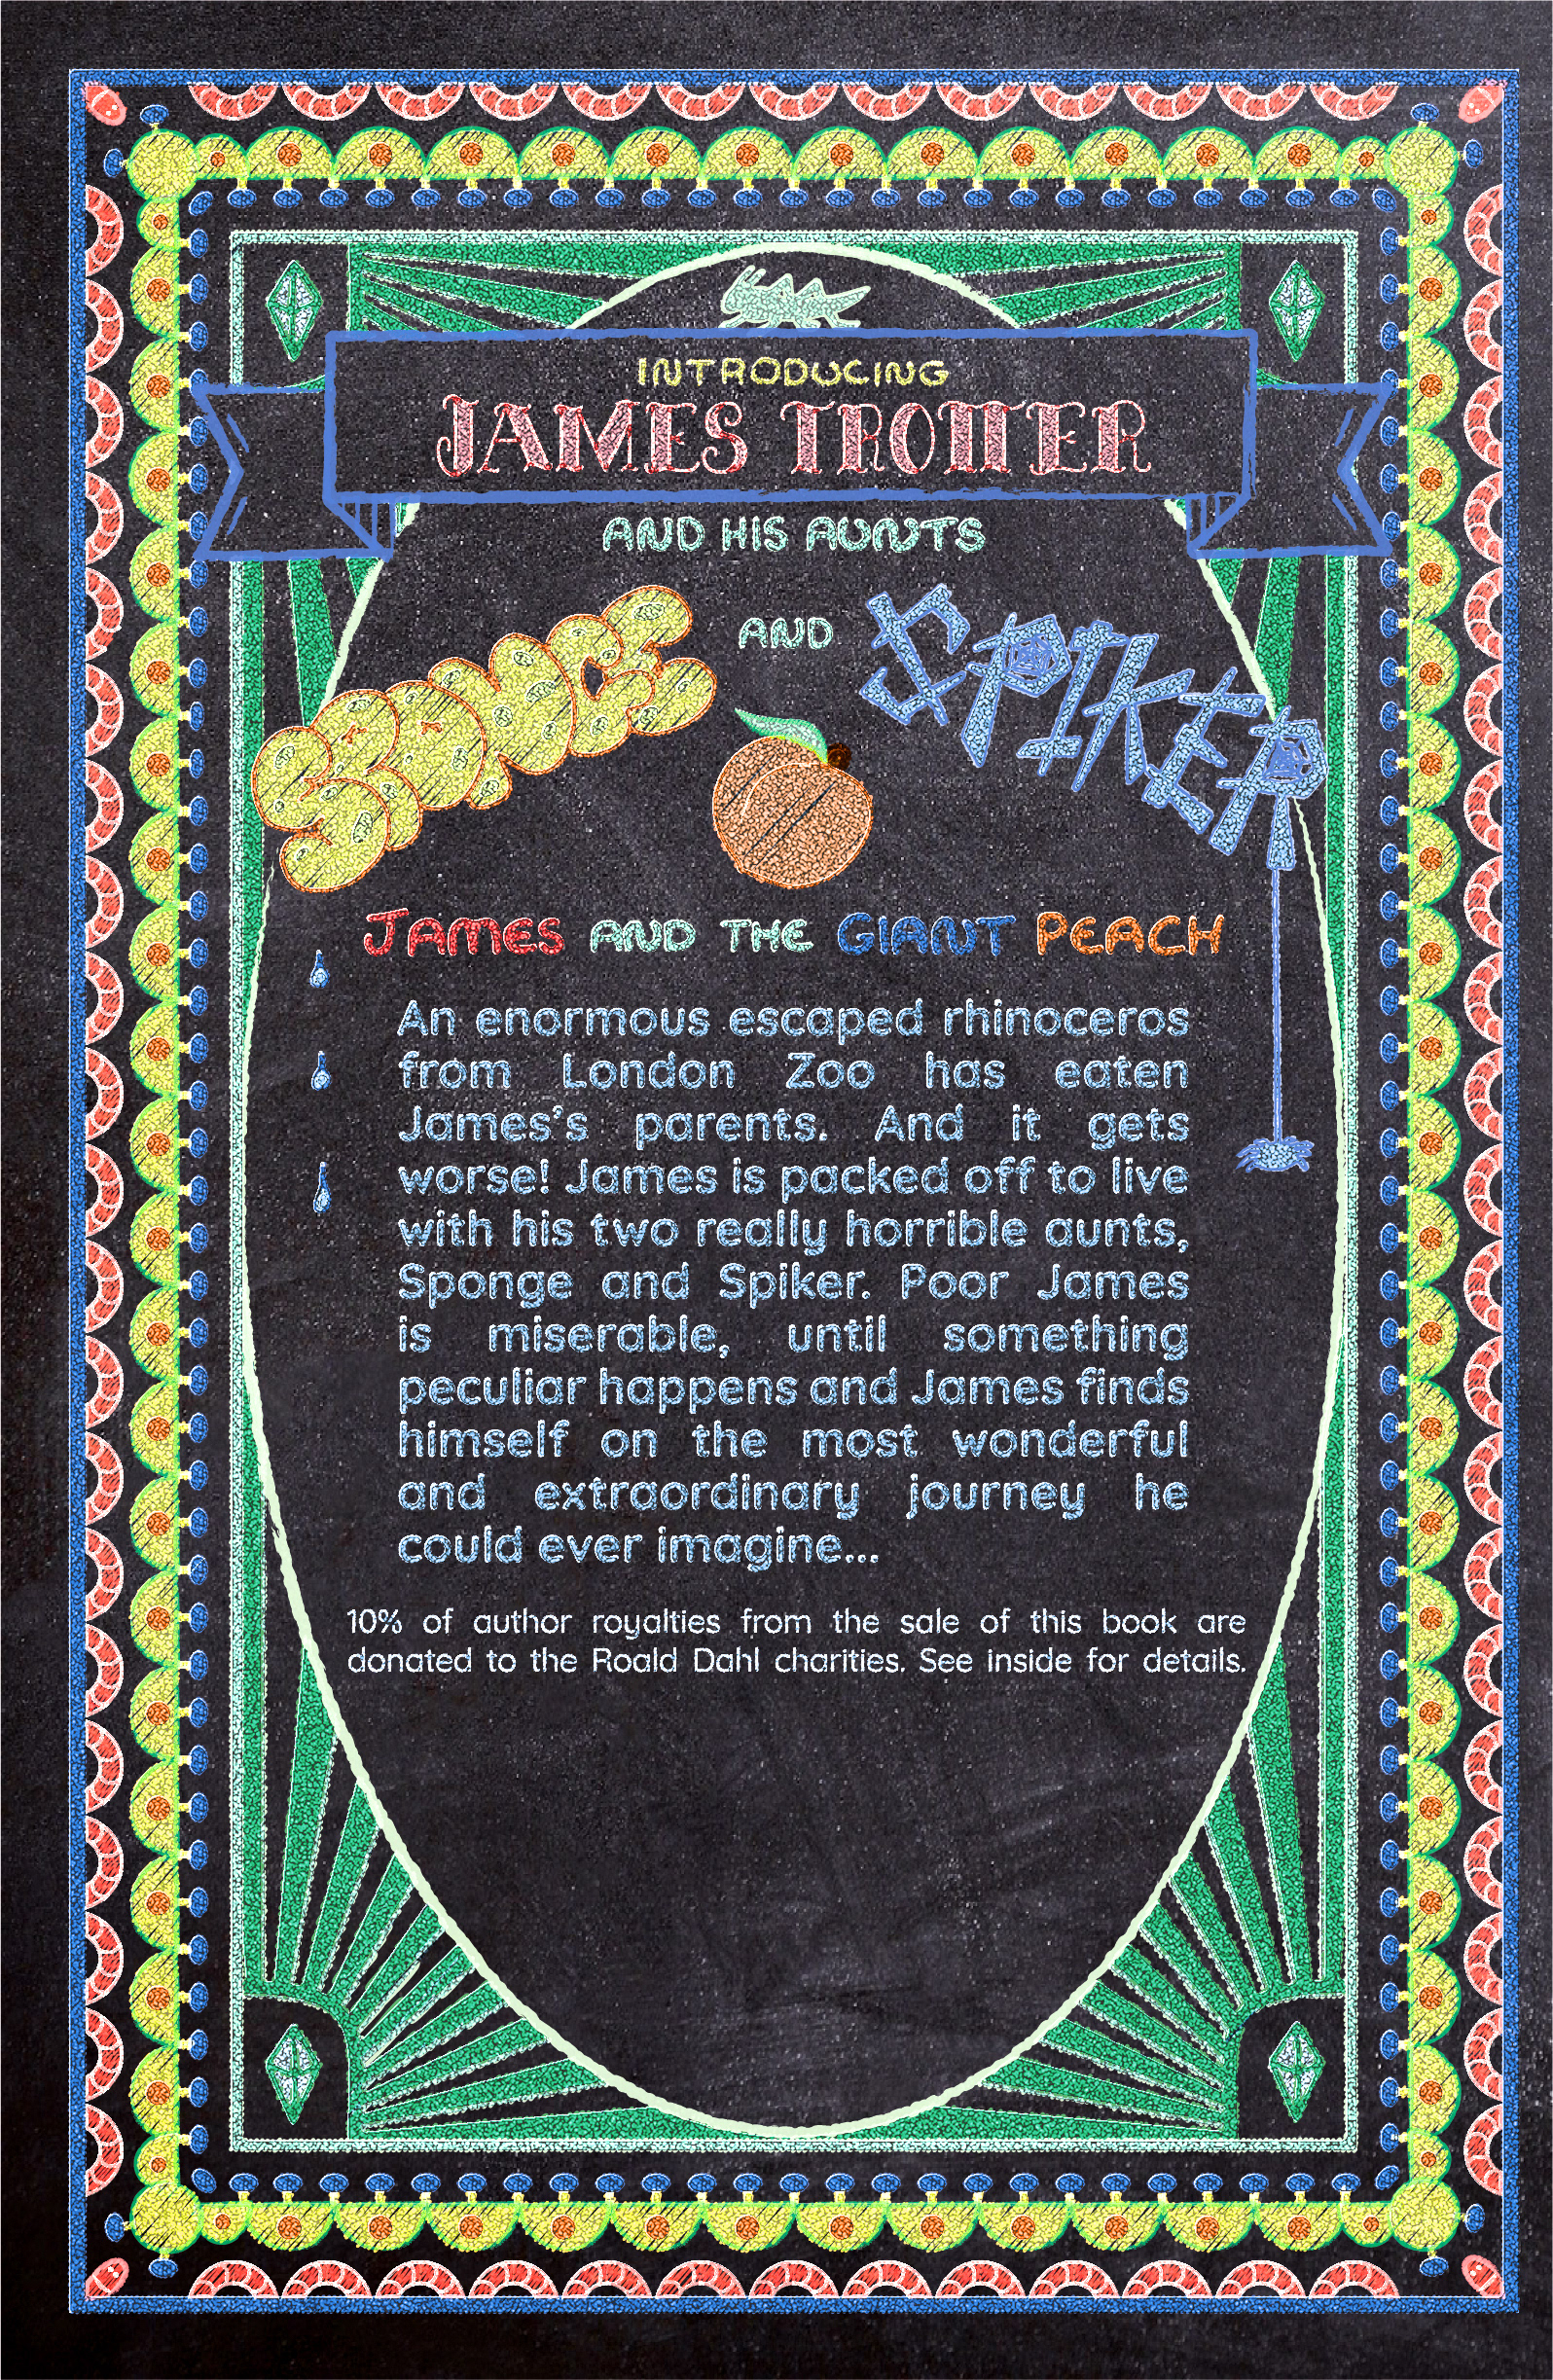 INTRODUCING
JAMES TROTTER
AND HIS AUNTS
SPONGE AND SPIKER
JAMES AND THE GIANT PEACH
An enormous escaped rhinoceros
from London Zoo has eaten
James's parents. And it gets
worse! James is packed off to live
with his two really horrible aunts,
Sponge and Spiker. Poor James
is miserable, until something
peculiar happens and James finds
himself on the most wonderful
and extraordinary journey he
could ever imagine...
10% of author royalties from the sale of this book are
donated to the Roald Dahl charities. See inside for details.